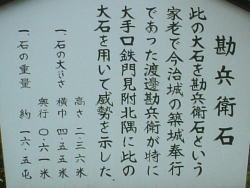 勘兵衛石
此の大石を勘兵衛石という
家老で今治城の築城奉行
であった渡邊勘兵衛が特に
大手口鉄門見附北隅に此の
大石を用いて威勢を示した
一石の大いさ
高さ 二・三六米
横巾 四・五五米
奥行 〇・六一米
一石の重量 約一六・五屯